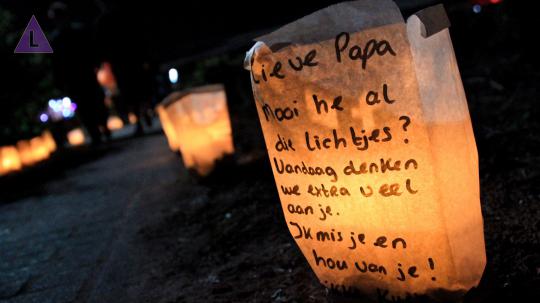 L
Lieve Papa
Mooi he al
die lichtjes?
Vandaag denken
we extra veel
aan je.
Ik mis je en
hou van je!